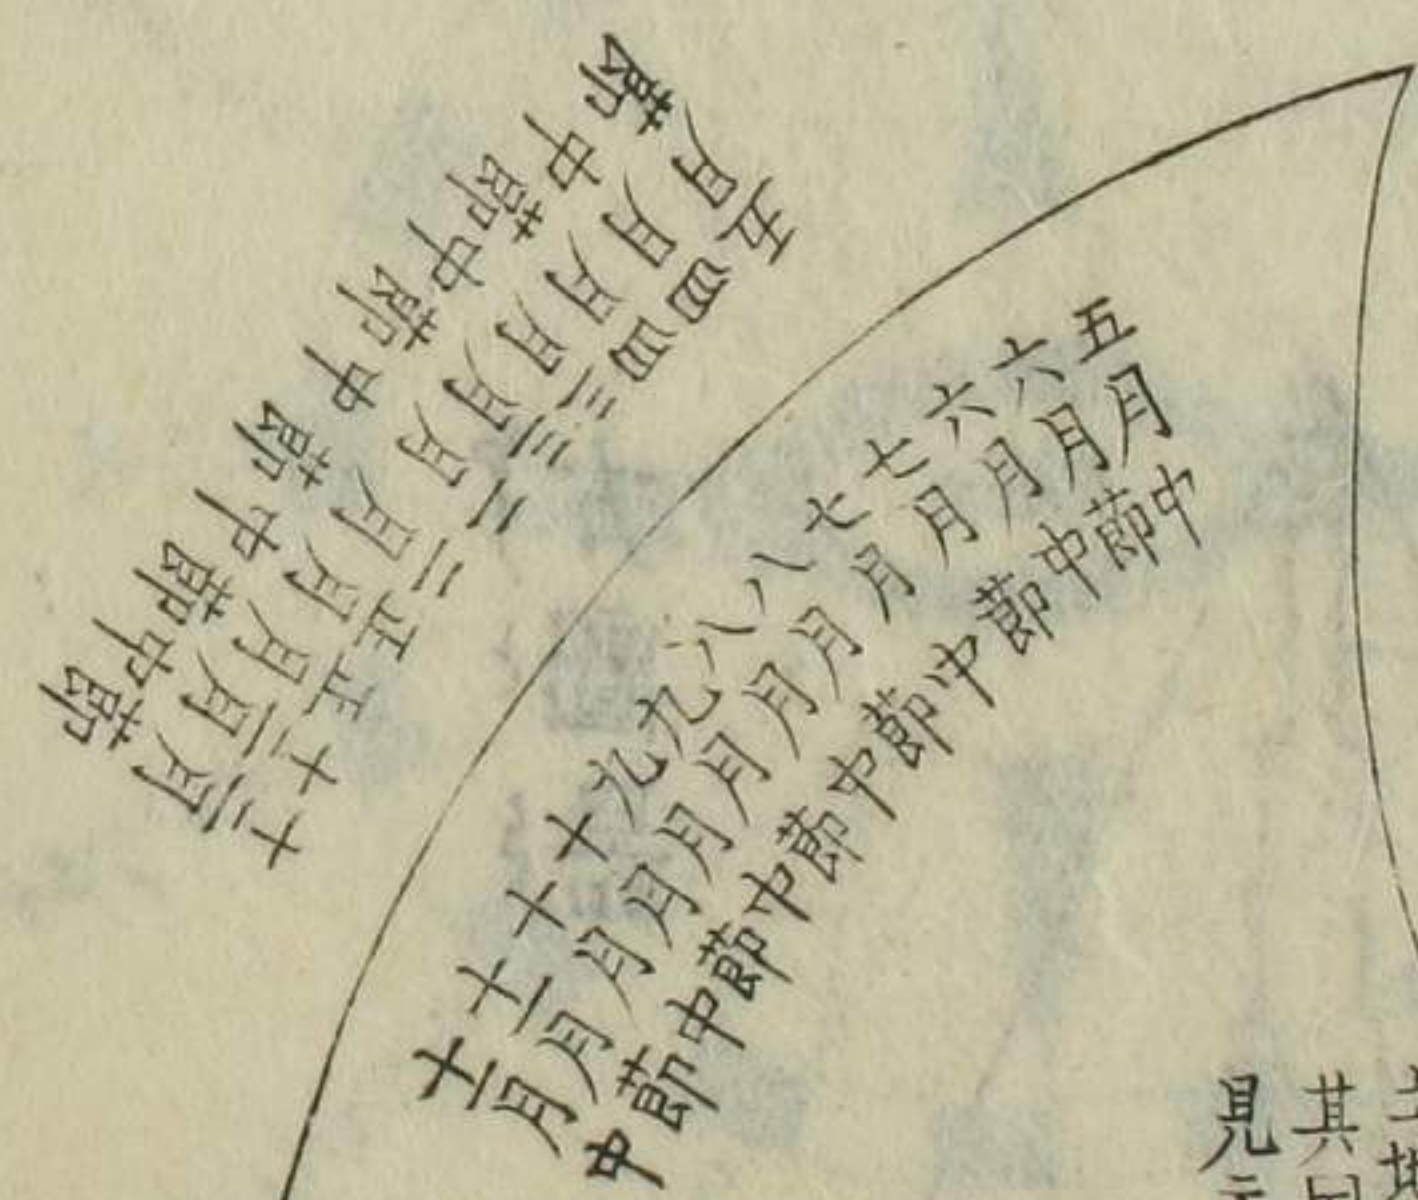 五月節
四月中
四月節
三月中
三月節
二月中
二月節
正月中
正月節
十二月中
十二月節
五月中
六月節
六月中
七月節
七月中
八月節
八月中
九月節
九月中
十月節
十月中
十一月節
十一月中
其
見